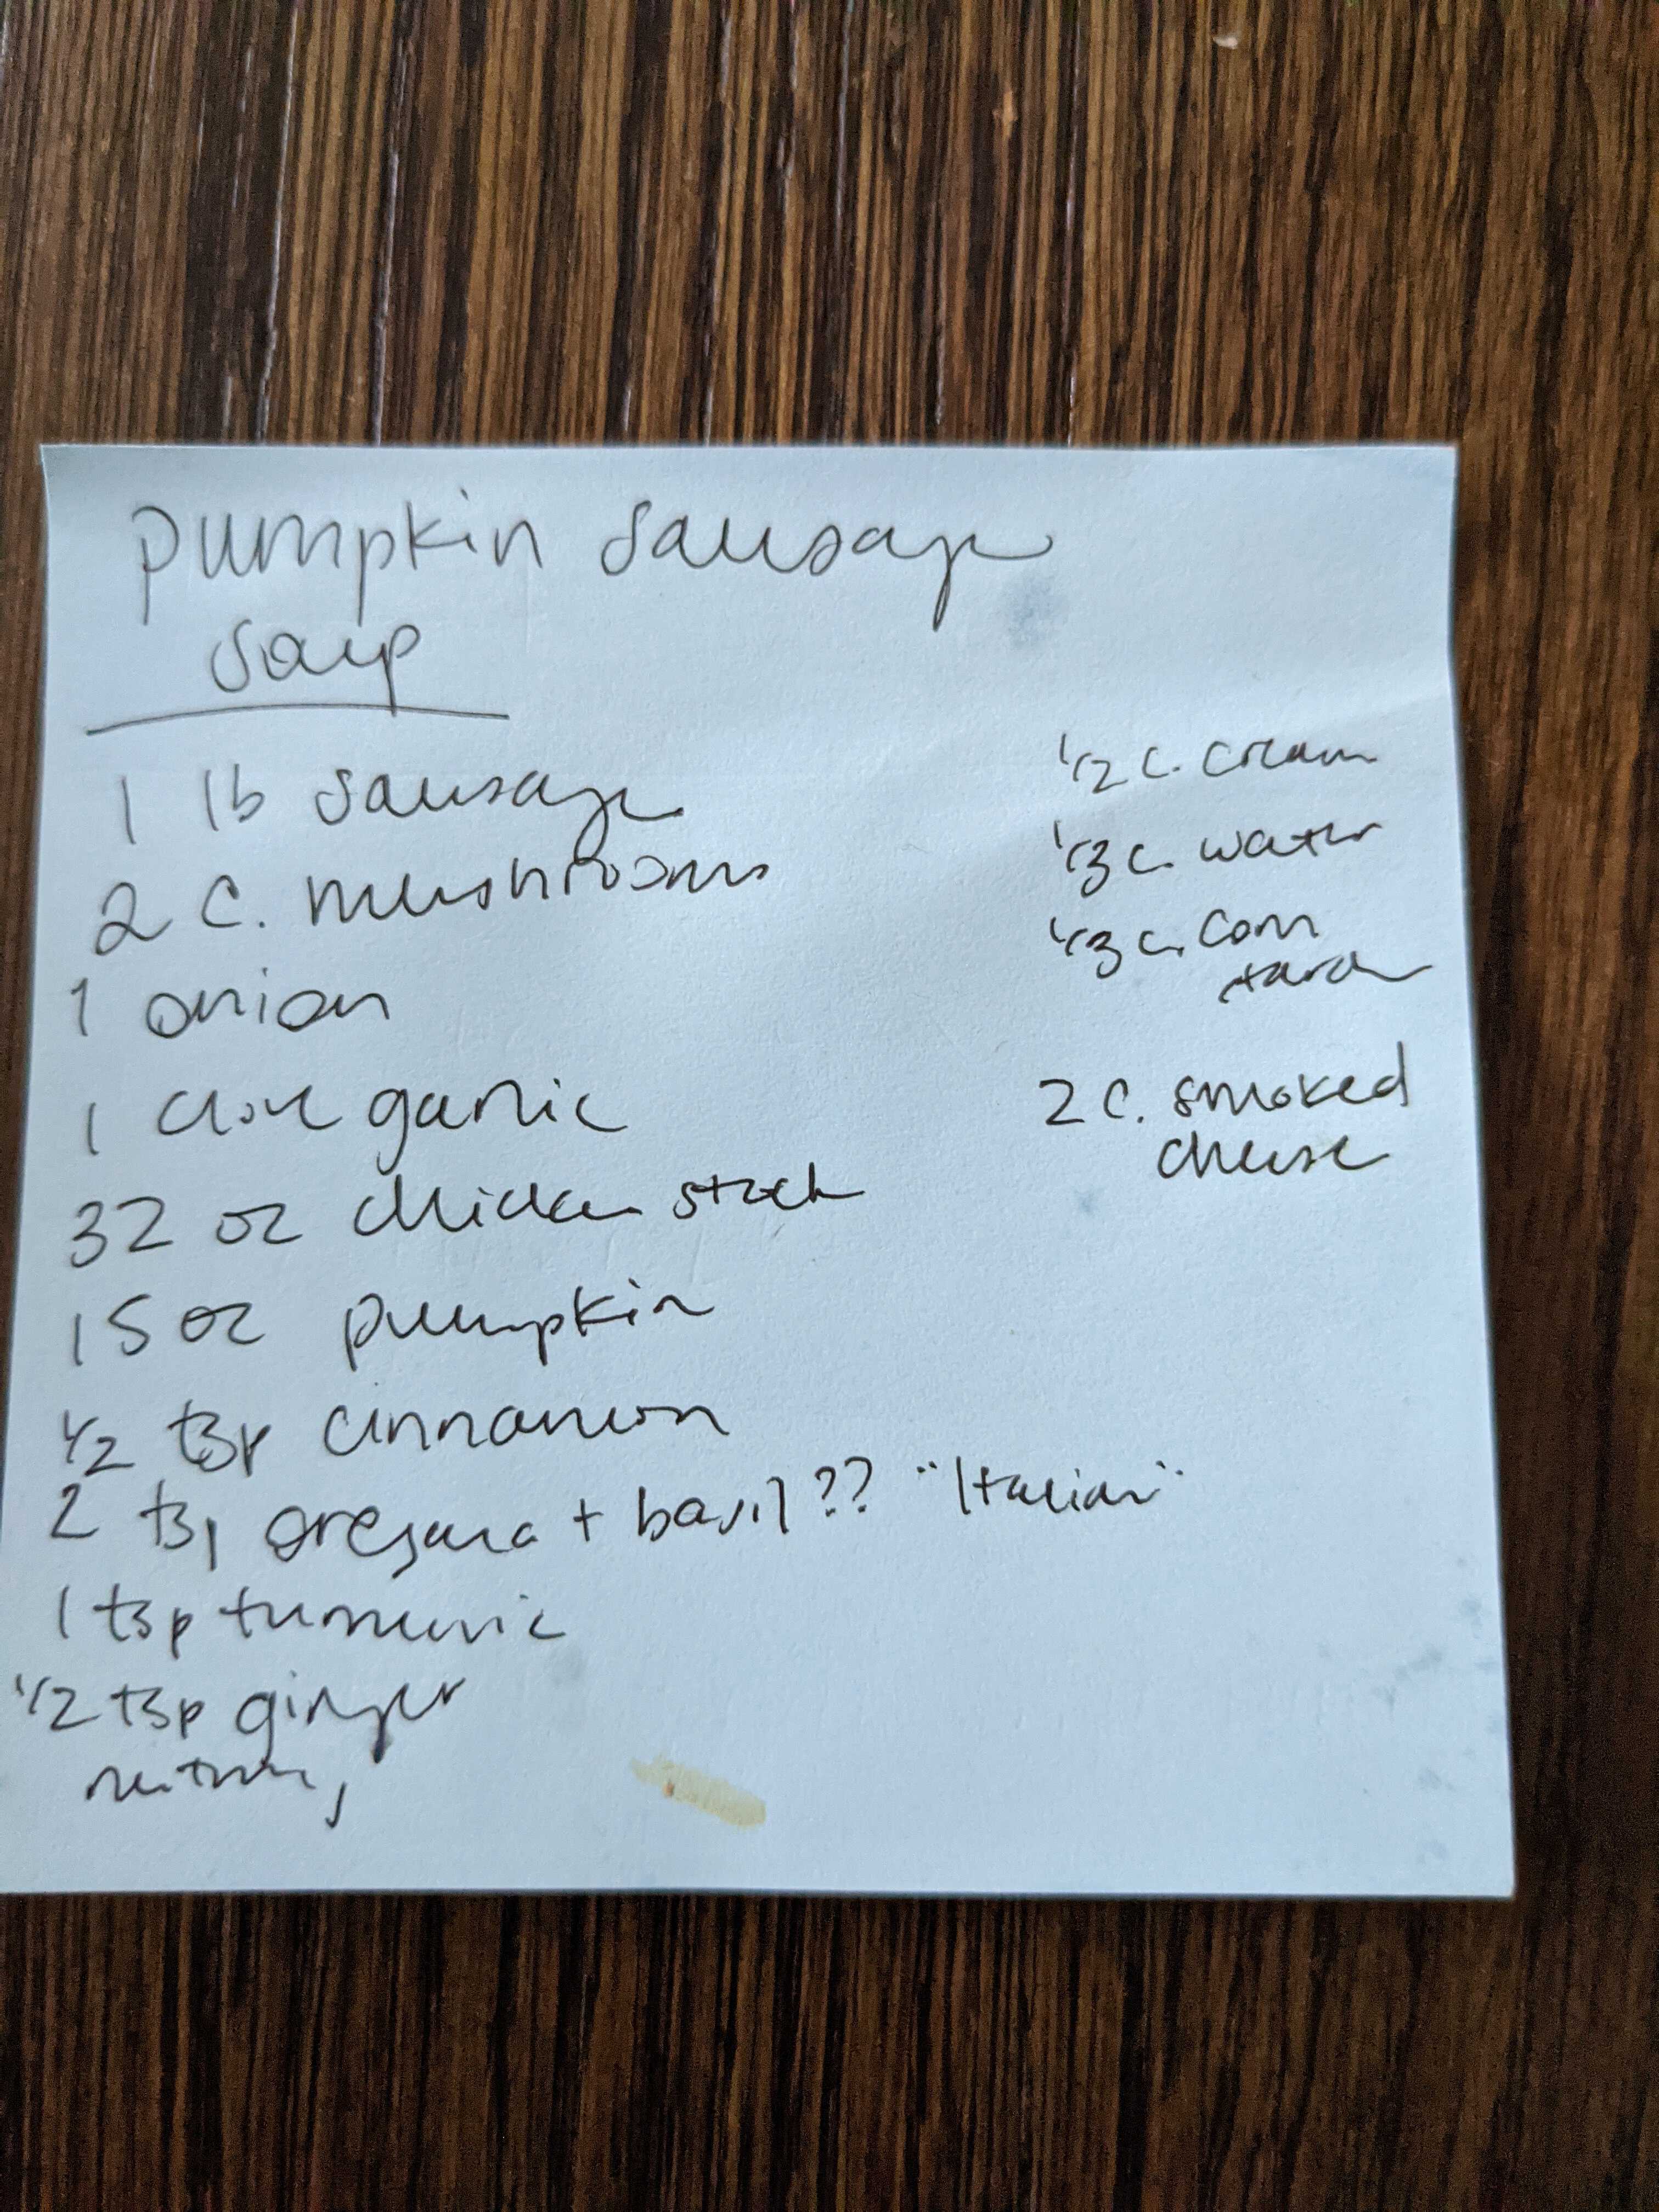 Pumpkin Sausage
Soup
1 lb sausage
2 C. mushrooms
1 onion
1 clove garlic
32 oz chicken stock
15 oz pumpkin
1/2 tsp cinnamon
2 tsp oregano + basil?? "Italian"
1 tsp tumeric
1/2 tsp ginger
nutmeg
1/2 c. cream
1/3 c. water
1/3 c. corn
starch
2 C. smoked
cheese